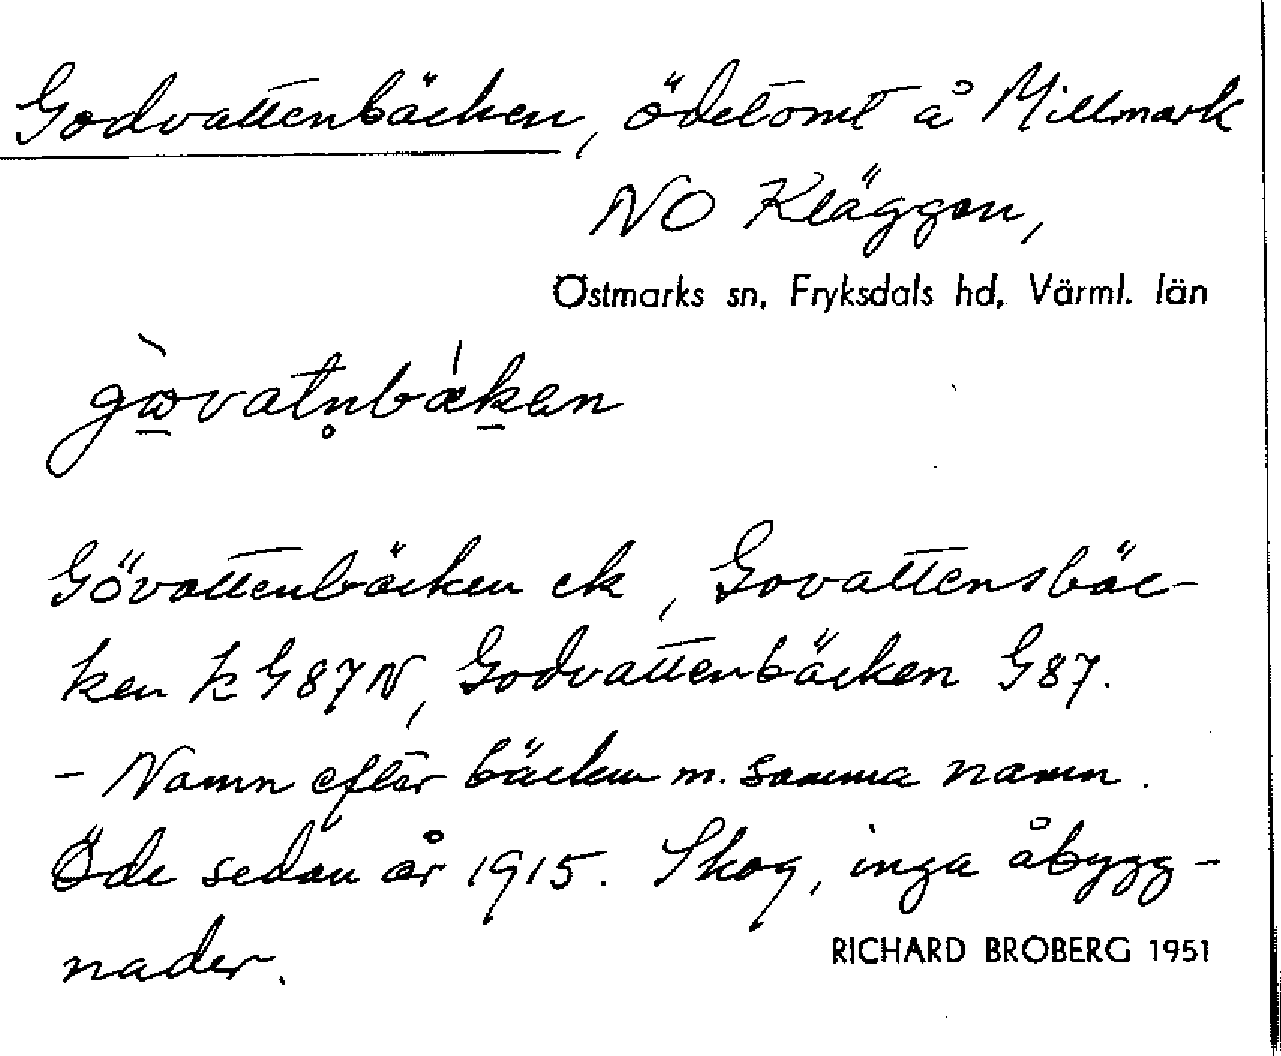 Godvattenbäcken, ödetomt å Millmark
NO Kläggen,
Östmarks sn, Fryksdals hd, Värml. län
gò̠vatn̥bǽk̠an
Gövattenbäcken ek, Govattensbäc-
ken k G87N, Godvattenbäcken G87.
- Namn efter bäcken m. samma namn.
Öde sedan år 1915. Skog, inga åbygg-
nader.
RICHARD BROBERG 1951